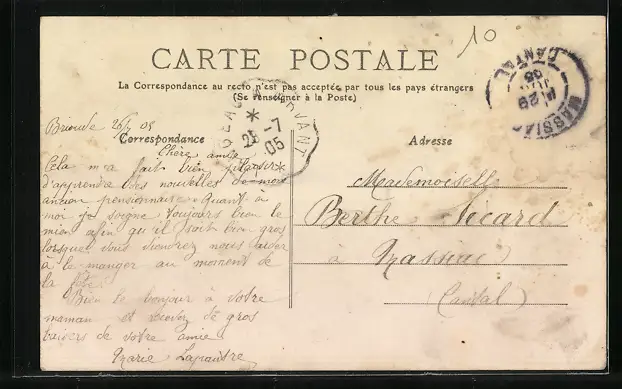 10
CARTE POSTALE
La Correspondance au recto n'est pas acceptée par tous les pays étrangers
(Se renseigner à la Poste)
MASSIAC
29
JUIL
05
CANTAL
25 -7
05
Correspondance
Adresse
Brioude 26/7 05
Chère amie
Cela m'a fait bien plaisir
d'apprendre des nouvelles de mon
ancien pensionnaire. Quant à
moi je soigne toujours bien le
mien afin qu'il soit bien gros
lorsque vous viendrez nous aider
à le manger au moment de
la fête.
Bien le bonjour à votre
maman et recevez de gros
baisers de votre amie
Marie
Mademoiselle
Berthe Sicard
à Massiac
(Cantal)